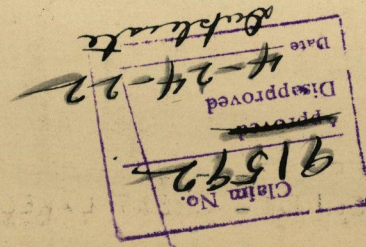 Claim No.
91592
Approved
Disapproved
Date 4-24-22
Duplicate